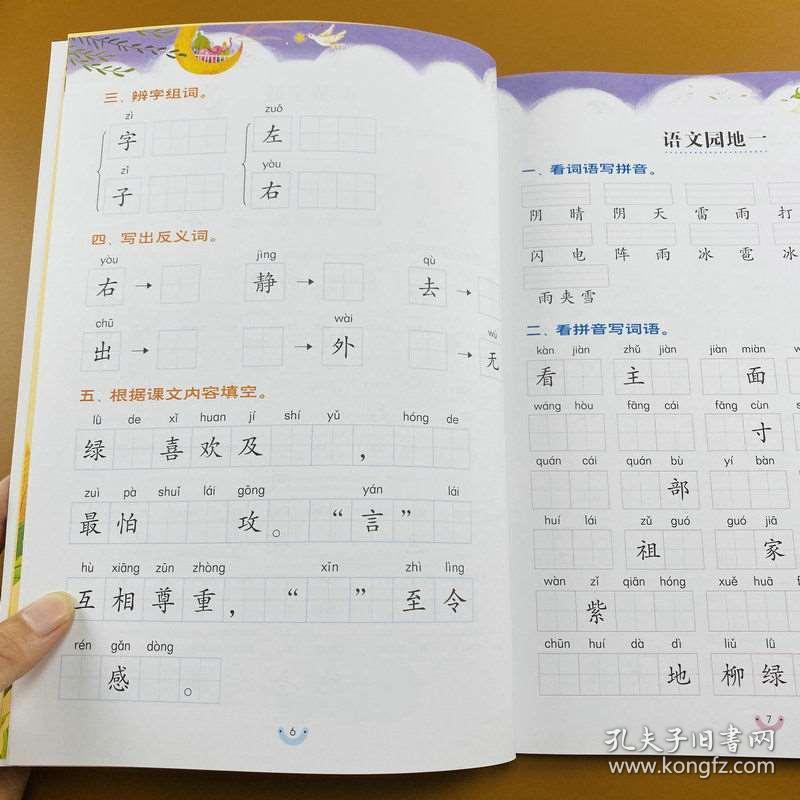 三、辨字组词。
zì zuǒ
字 左
zǐ yòu
子 右
四、写出反义词。
yòu jìng qù
右 → 静 → 去 →
chū wài wú
出 → → 外 → 无
五、根据课文内容填空。
lǜ de xǐ huan jí shí yǔ hóng de
绿 喜 欢 及 ，
zuì pà shuǐ lái gōng yán lái
最 怕 攻 。 “ 言 ”
hù xiāng zūn zhòng xīn zhì lìng
互 相 尊 重 ， “ ” 至 令
rén gǎn dòng
感 。
6
语文园地一
一、看词语写拼音。
阴 晴 阴 天 雷 雨 打
闪 电 阵 雨 冰 雹 冰
雨 夹 雪
二、看拼音写词语。
kàn jiàn zhǔ jiàn jiàn miàn w
看 主 面
wáng hòu fāng cái fāng cùn
寸
quán cái quán bù yí bàn
部
huí lái zǔ guó guó jiā
祖 家
wàn zǐ qiān hóng xuě huā
紫
chūn huí dà dì liǔ lǜ
地 柳 绿
7
孔夫子旧书网
www.kongfz.com